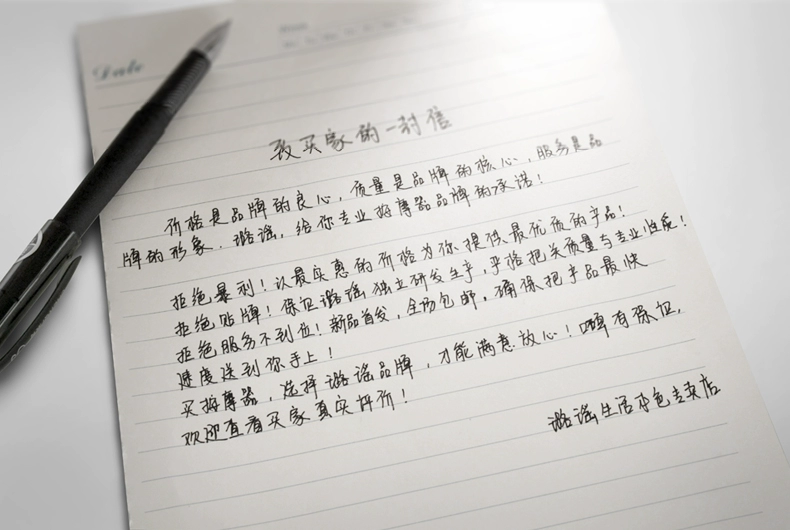 Date
致买家的一封信
价格是品牌的良心，质量是品牌的核心，服务是品
牌的形象．璐谣，给你专业按摩器品牌的承诺！
拒绝暴利！以最实惠的价格为你提供最优质的产品！
拒绝贴牌！保证璐谣独立研发生产，严格把关质量与专业性能！
拒绝服务不到位！新品首发，全场包邮，确保把产品最快
速度送到你手上！
买按摩器，选择璐谣品牌，才能满意放心！口碑有保证，
欢迎查看买家真实评价！
璐谣生活本色专卖店